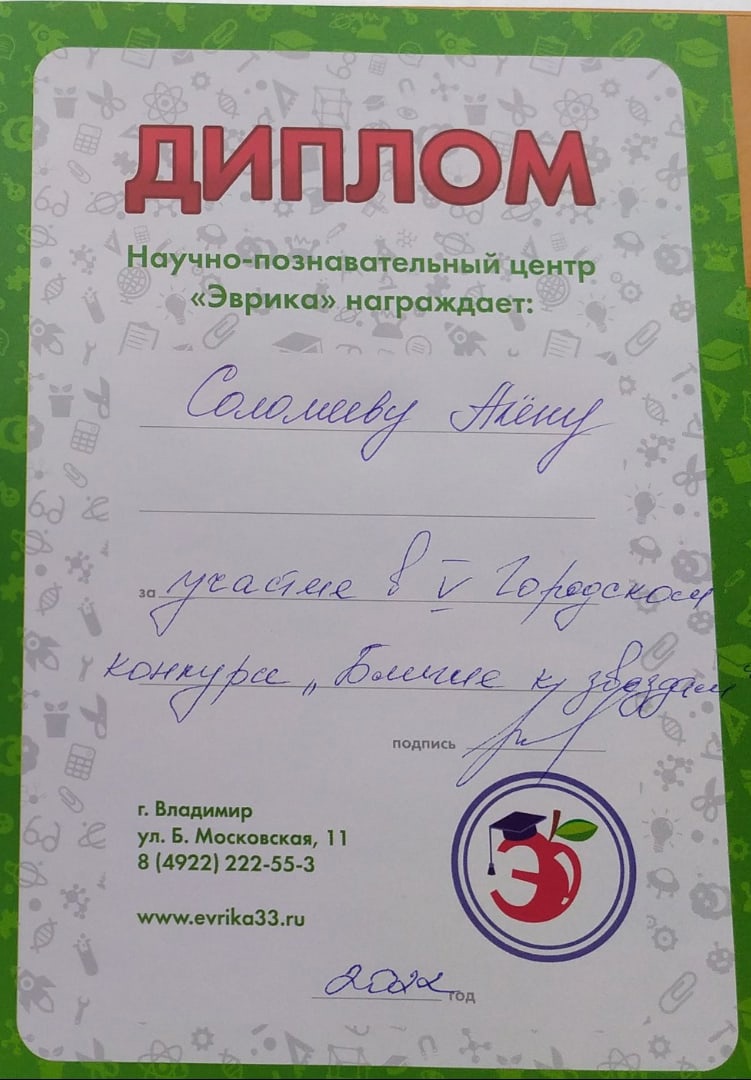 ДИПЛОМ
Научно-познавательный центр
«Эврика» награждает:
Соломееву Алёну
за участие в V Городском
конкурсе „Ближе к звёздам
подпись
г. Владимир
ул. Б. Московская, 11
8 (4922) 222-55-3
www.evrika33.ru
Э
2022 год